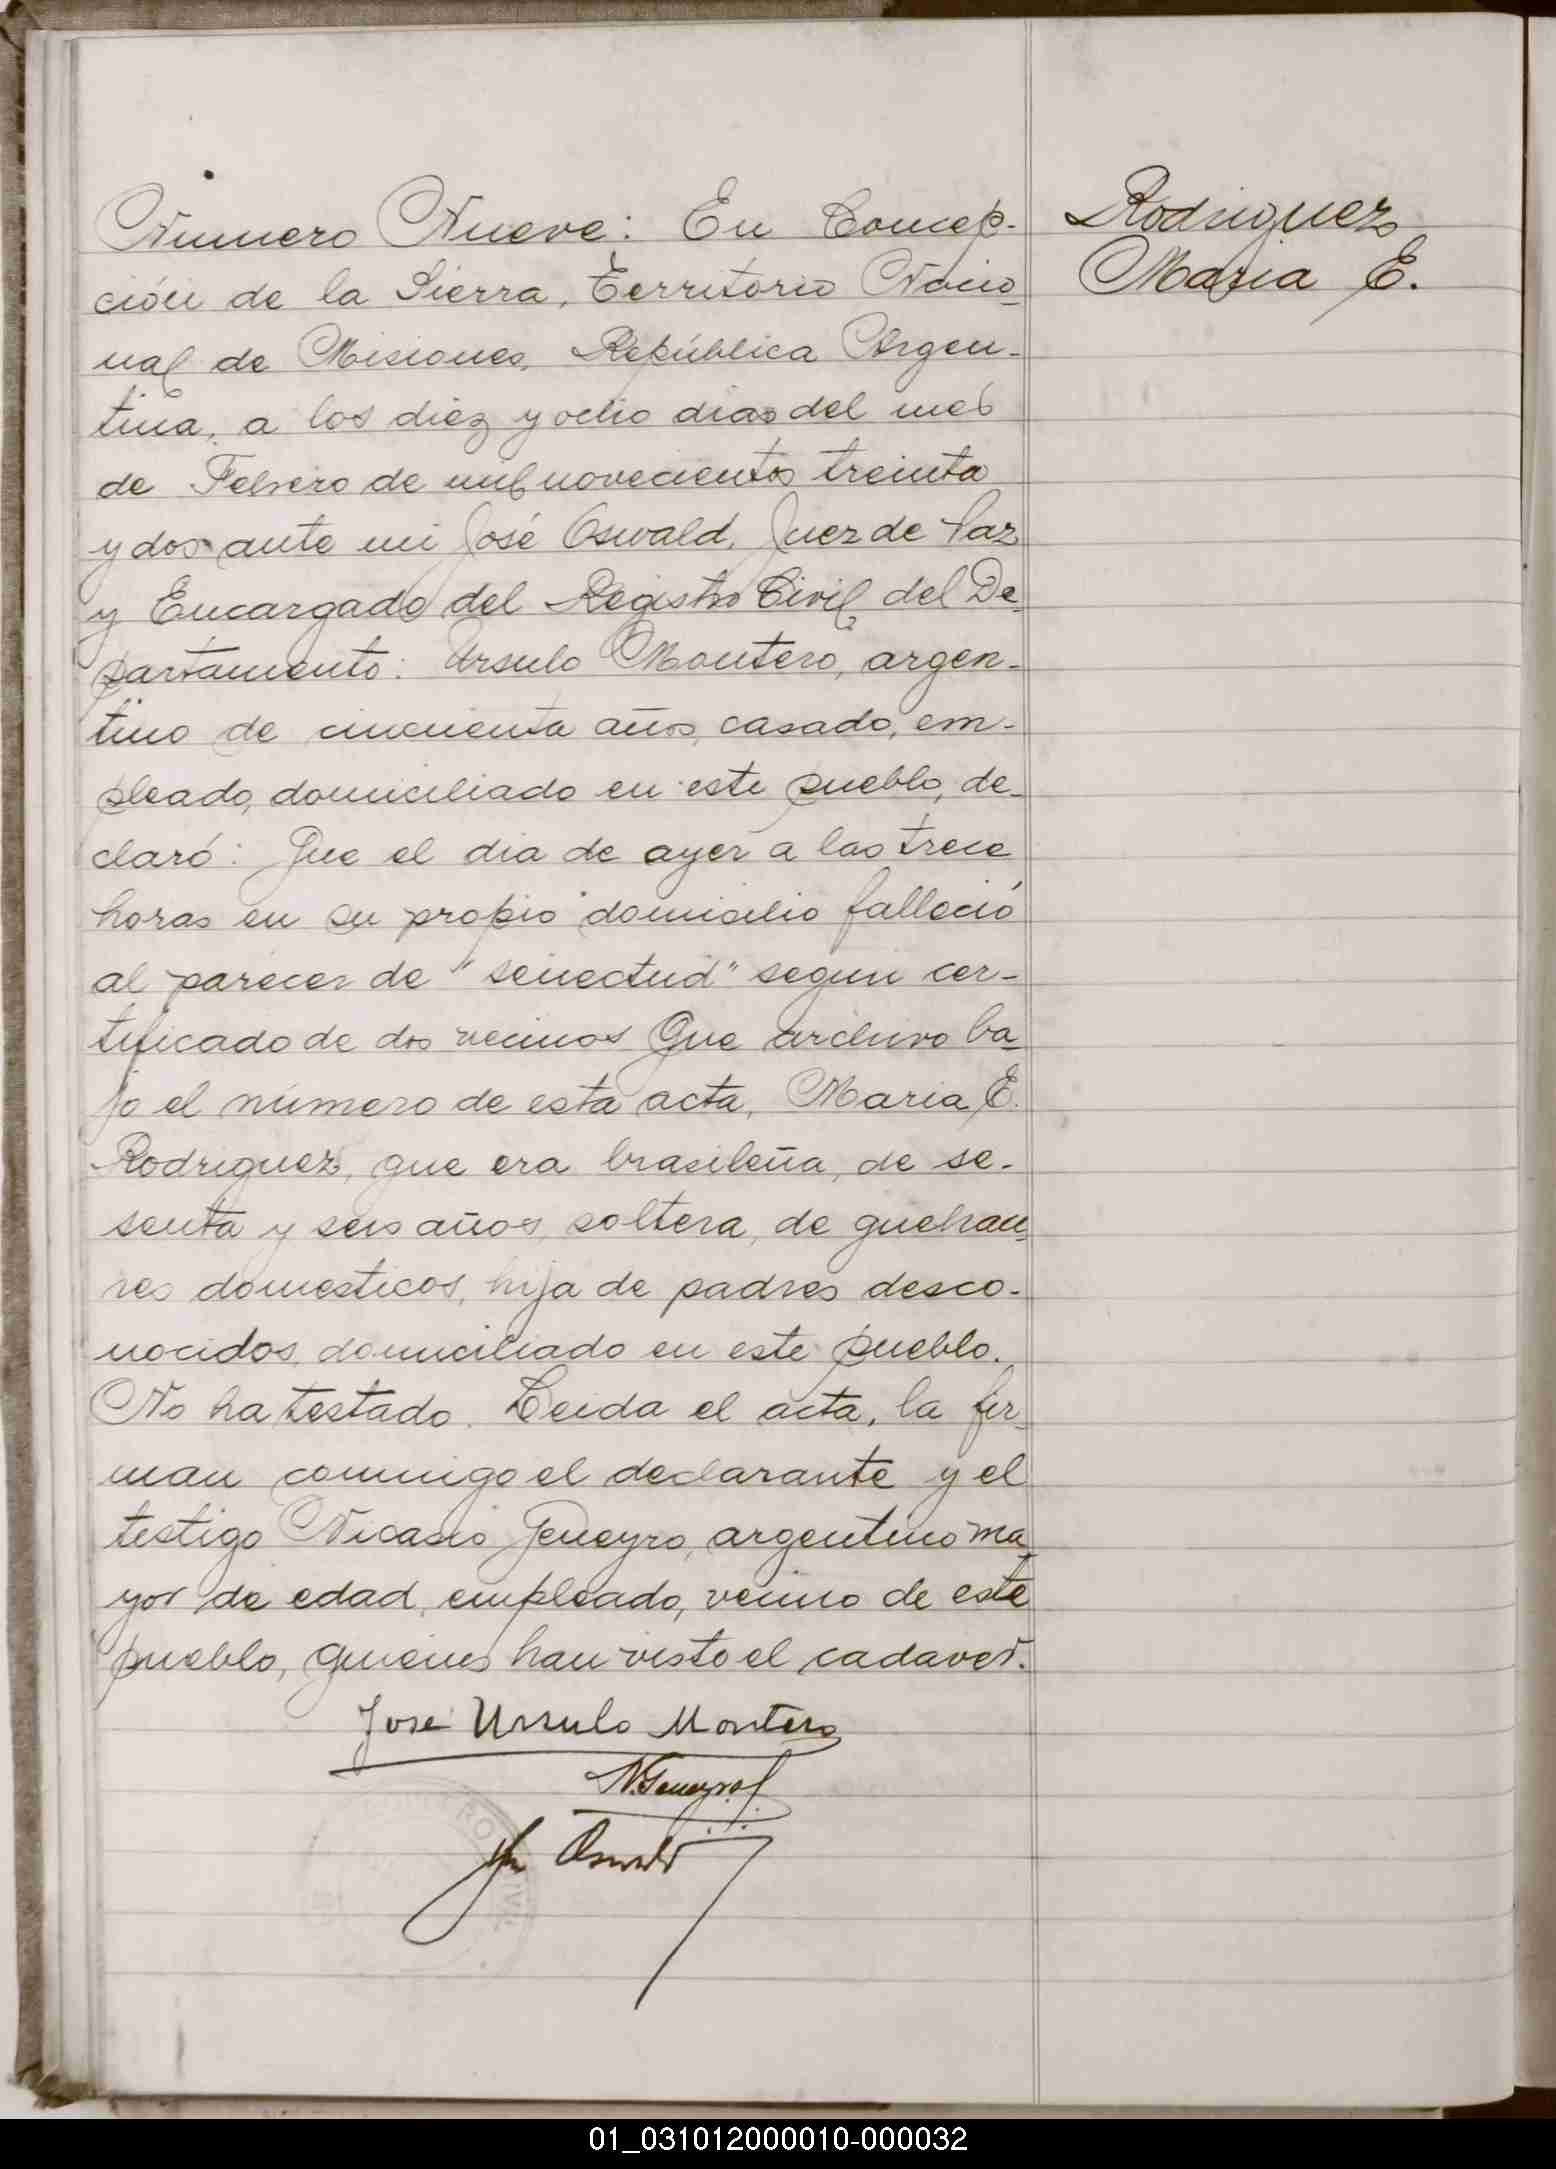 Numero Nueve: En Concep-
ción de la Sierra, Territorio Nacio-
nal de Misiones, República Argen-
tina, a los diez y ocho dias del mes
de Febrero de mil novecientos treinta
y dos ante mi José Oswald, Juez de Paz
y Encargado del Registro Civil del De-
partamento: Ursulo Montero, argen-
tino de cincuenta años, casado, em-
pleado, domiciliado en este pueblo, de-
claró: Que el dia de ayer a las trece
horas en su propio domicilio falleció
al parecer de "senectud" segun cer-
tificado de dos vecinos Que archivo ba-
jo el número de esta acta, Maria E.
Rodriguez, que era brasileña, de se-
senta y seis años, soltera, de quehace-
res domesticos, hija de padres desco-
nocidos, domiciliado en este pueblo.
No ha testado. Leida el acta, la fir-
man conmigo el declarante y el
testigo Nicasio Geneyro, argentino ma-
yor de edad, empleado, vecino de este
pueblo, quienes han visto el cadaver.
Jose Ursulo Montero
N. Geneyro
Oswald
Rodriguez
Maria E.
01_031012000010-000032